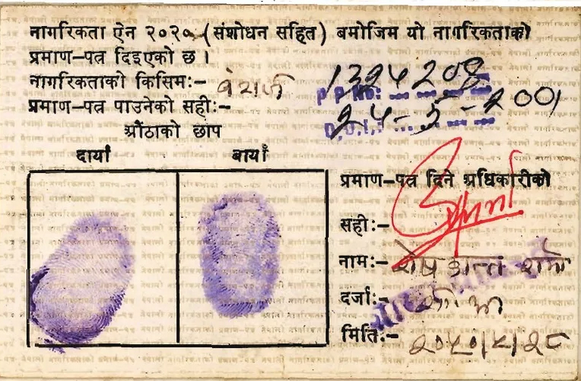 नागरिकता ऐन २०२० (संशोधन सहित) बमोजिम यो नागरिकताको
प्रमाण-पत्र दिइएको छ ।
नागरिकताको किसिम:- वंशज
प्रमाण-पत्र पाउनेको सही:-
औंठाको छाप
दायाँ बायाँ
1324208
P.P.No:
24-5-2001
D.O.I.:
प्रमाण-पत्र दिने अधिकारीको
सही:-
नाम:- शेष अन्त शर्मा
दर्जा:-
मिति:-